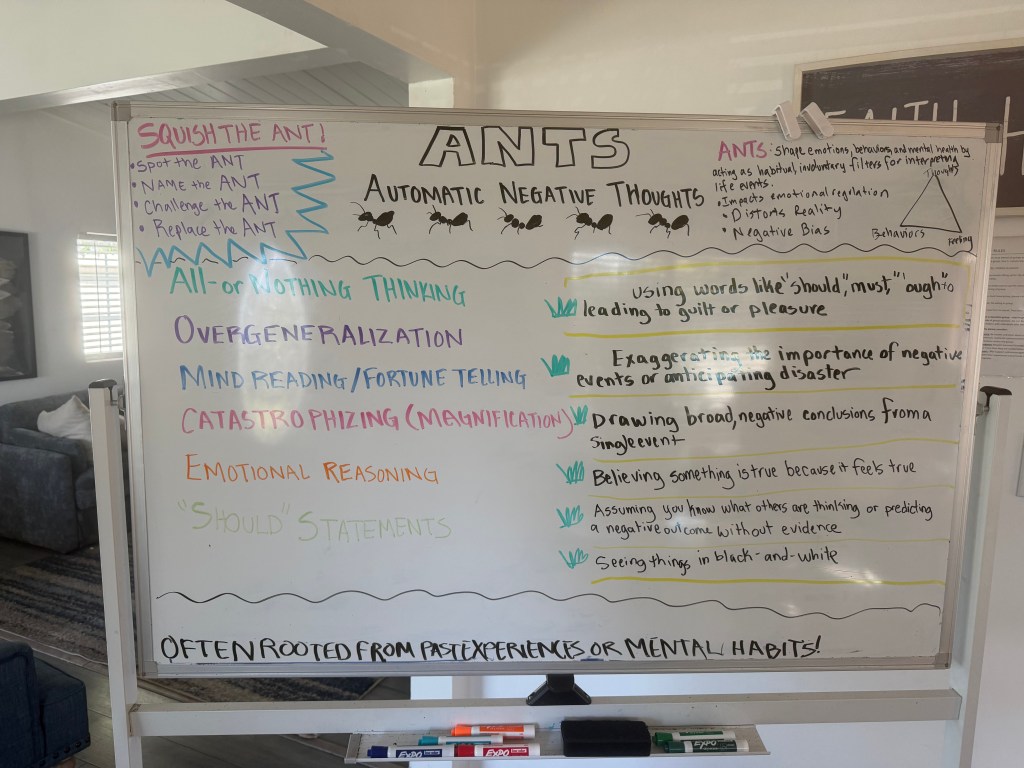 SQUISH THE ANT!
• Spot the ANT
• NAME the ANT
• Challenge the ANT
• Replace the ANT
ANTS
AUTOMATIC NEGATIVE THOUGHTS
ANTS: Shape emotions, behaviors, and mental health by
acting as habitual, involuntary filters for interpreting
life events.
• Impacts emotional regulation
• Distorts Reality
• Negative Bias
Thoughts
Behaviors
Feeling
All-or NOTHING THINKING
OVERGENERALIZATION
MIND READING/FORTUNE TELLING
CATASTROPHIZING (MAGNIFICATION)
EMOTIONAL REASONING
"SHOULD" STATEMENTS
using words like "should," must," "ough"to
leading to guilt or pleasure
Exaggerating the importance of negative
events or anticipating disaster
Drawing broad, negative conclusions from a
single event
Believing something is true because it feels true
Assuming you know what others are thinking or predicting
a negative outcome without evidence
Seeing things in black-and-white
OFTEN ROOTED FROM PAST EXPERIENCES OR MENTAL HABITS!
EXPO
EXPO
EXPO